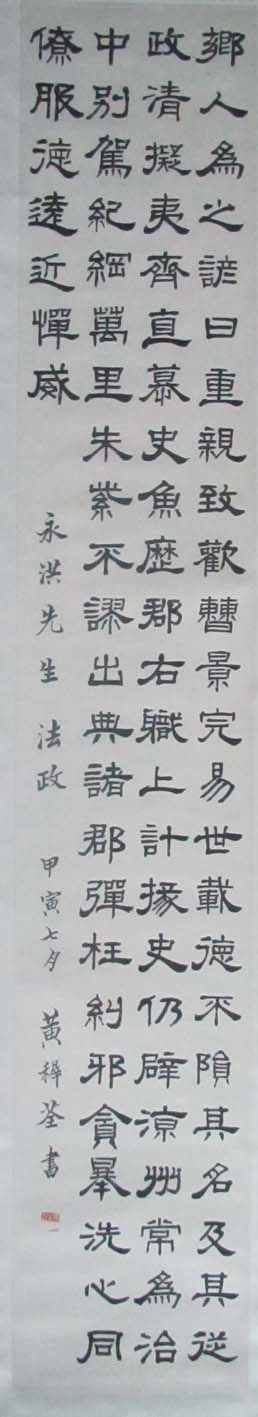 鄉人為之諺曰重親致歡曹景完易世載德不隕其名及其從
政清擬夷齊直慕史魚歷郡右職上計掾史仍辟涼州常為治
中別駕紀綱萬里朱紫不謬出典諸郡彈枉糾邪貪暴洗心同
僚服德遠近憚威
永洪先生 法政 甲寅七夕 黃稚荃書